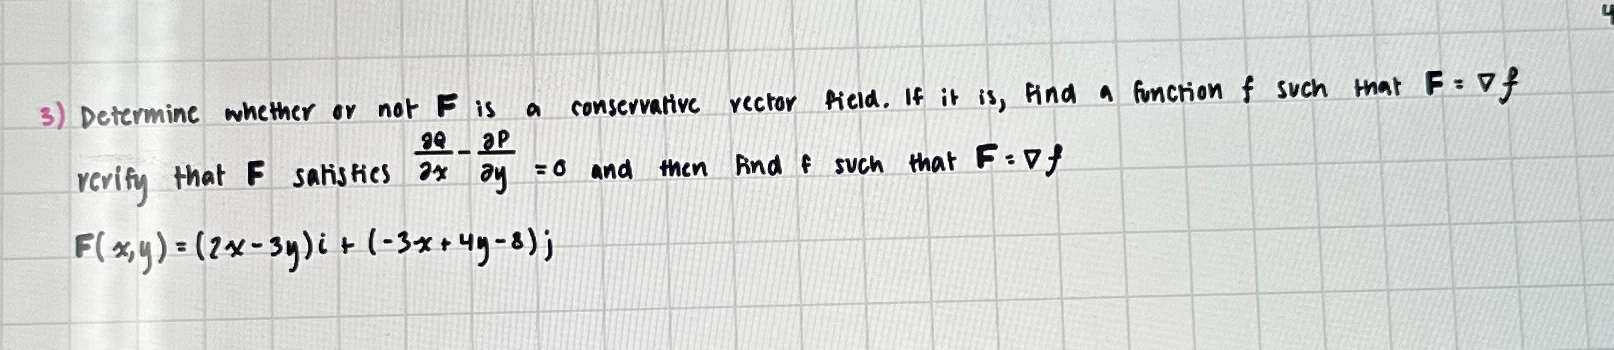 4
3) Determine whether or not F is a conservative vector field. If it is, find a function f such that F = ∇f
verify that F satisfies ∂Q/∂x - ∂P/∂y = 0 and then find f such that F = ∇f
F(x,y) = (2x - 3y)i + (-3x + 4y - 8)j